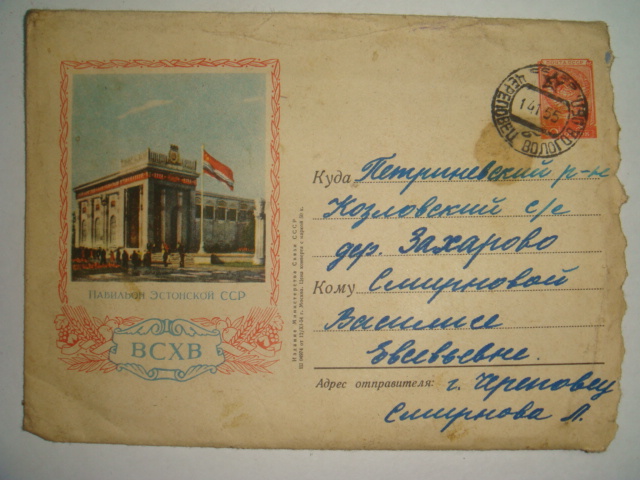 ПАВИЛЬОН ЭСТОНСКОЙ ССР
ВСХВ
ЧЕРЕПОВЕЦ ВОЛОГОД. ОБЛ.
Куда Петриневский р-н
Козловский с/с
дер. Захарово
Кому Смирновой
Василисе
Евсевьевне.
Адрес отправителя: г. Череповец
Смирнова Л.
Издание Министерства Связи СССР.